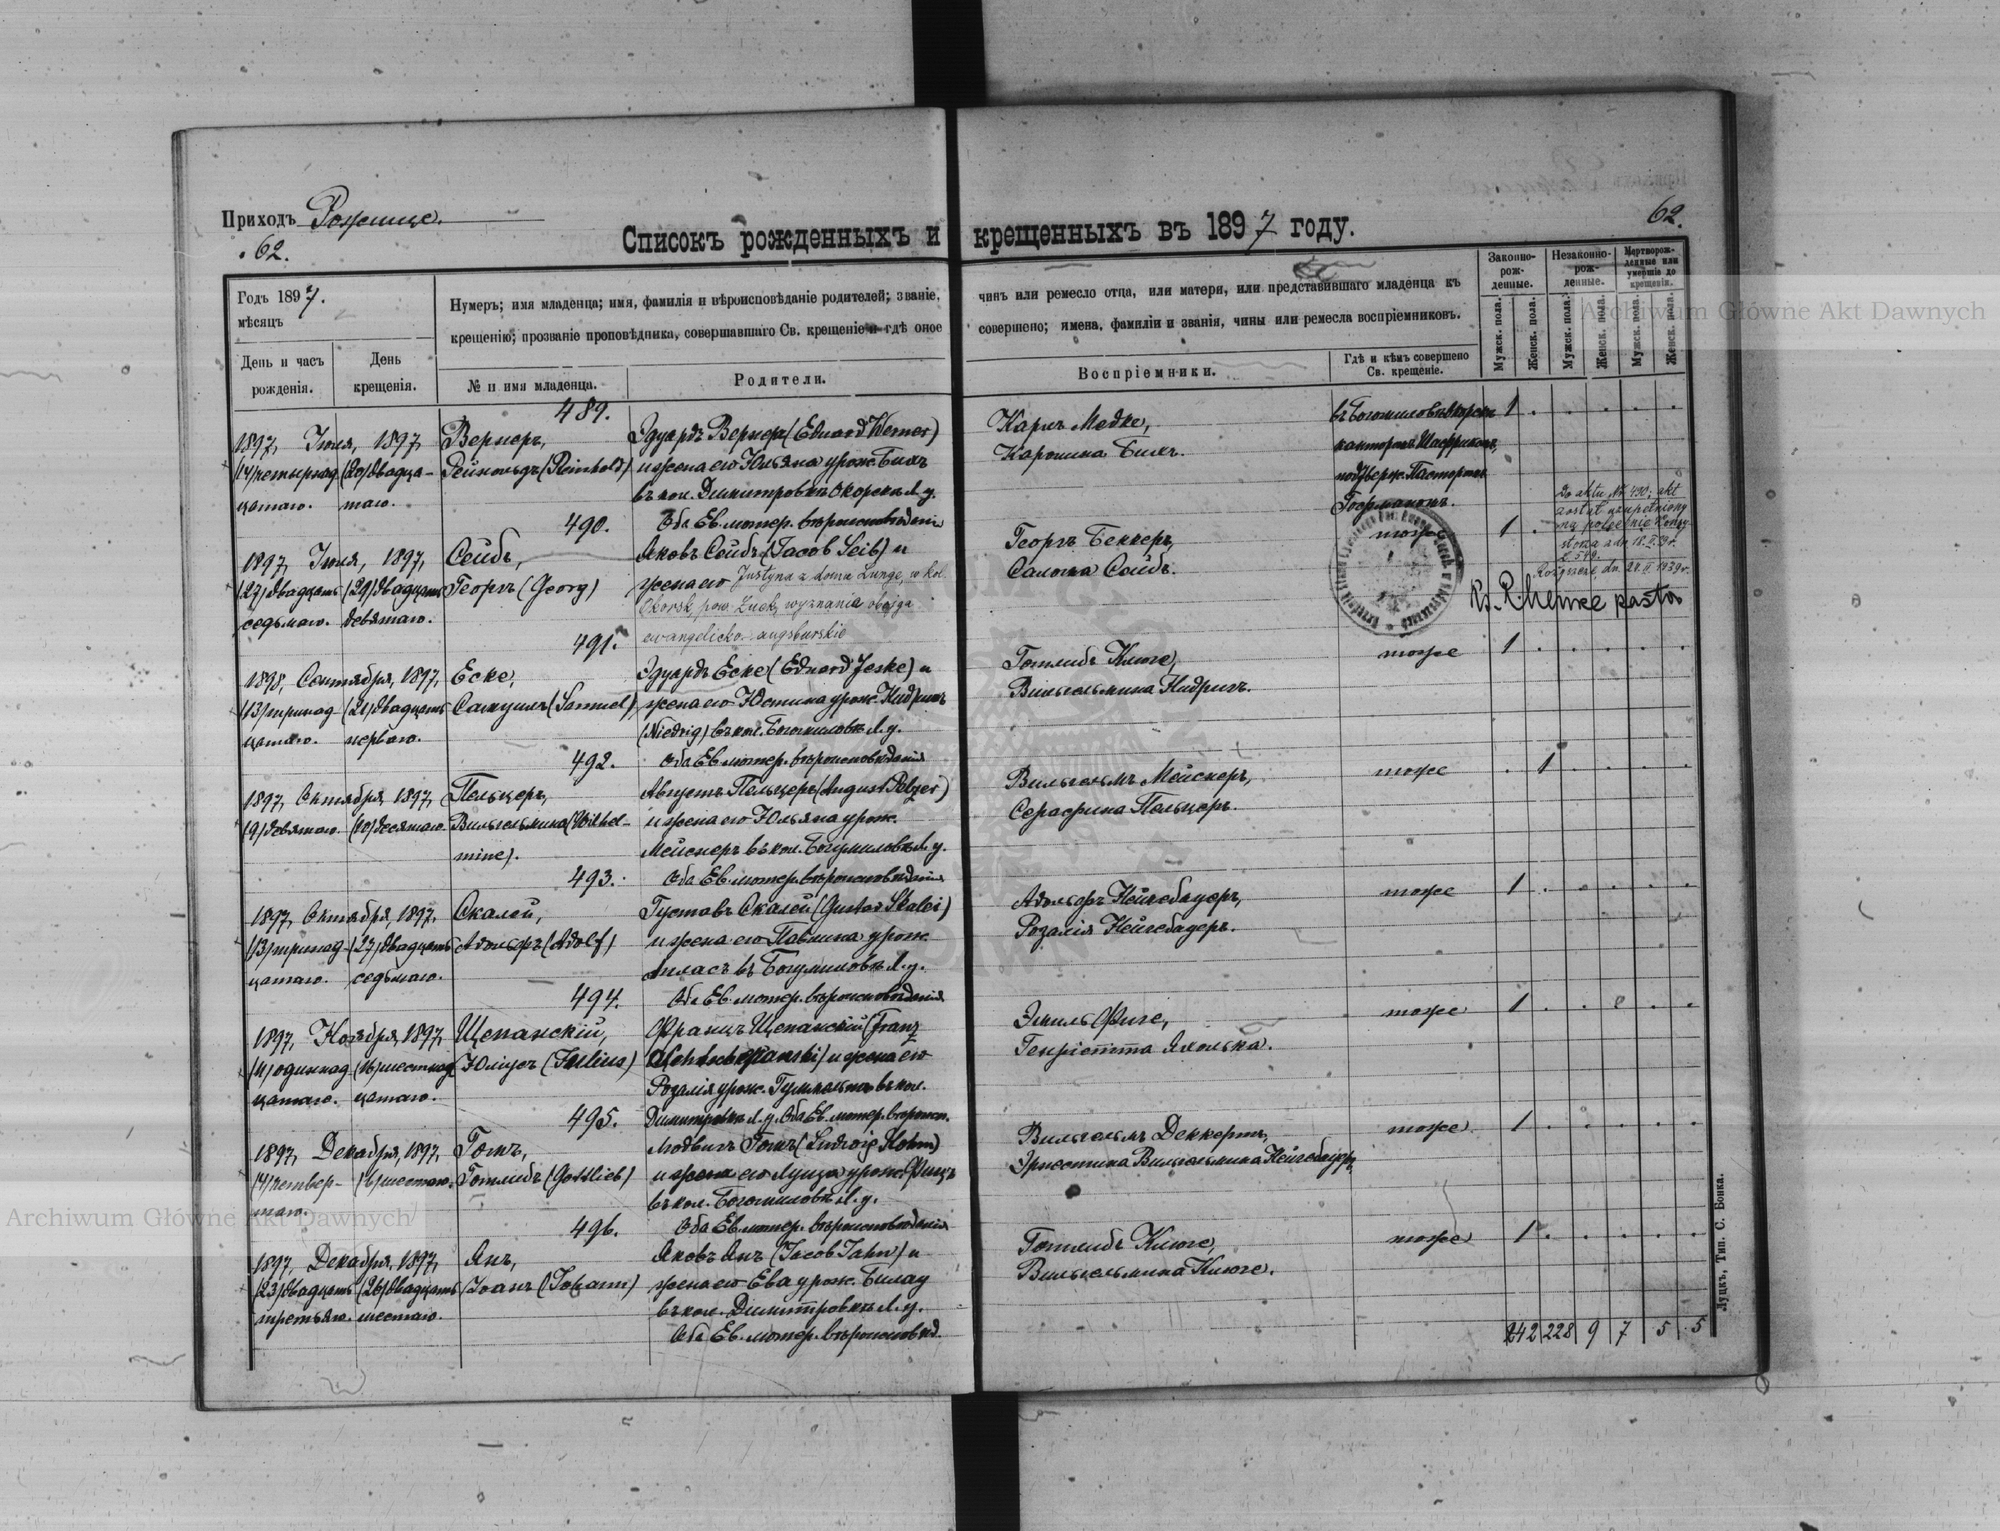 Приходъ Рожище.
62.
62.
Списокъ рожденныхъ и крещенныхъ въ 1897 году.
Годъ 1897.
мѣсяцъ
День и часъ рожденія.
День крещенія.
Нумеръ; имя младенца; имя, фамилія и вѣроисповѣданіе родителей; званіе, чинъ или ремесло отца, или матери, или представившаго младенца къ
крещенію; прозваніе проповѣдника, совершавшаго Св. крещеніе и гдѣ оное совершено; имена, фамиліи и званія, чины или ремесла воспріемниковъ.
№ и имя младенца.
Родители.
Воспріемники.
Гдѣ и кѣмъ совершено Св. крещеніе.
Законно-рож-денные.
Незаконно-рож-денные.
Мертворож-денные или умершіе до крещенія.
Мужск. пола.
Женск. пола.
Мужск. пола.
Женск. пола.
Мужск. пола.
Женск. пола.
489.
1897, Іюля, 1897,
(14) четырнад (20) двадца-
цатаго. таго.
Вернеръ,
Рейнольдъ (Reinhold)
Эдуардъ Вернеръ (Eduard Werner)
и жена его Юльяна урож. Билъ
въ кол. Димитровкѣ Окорска Л. у.
Оба Ев. лютер. вѣроисповѣданія
Карлъ Медке,
Каролина Билъ.
въ Богомиловкѣ
канторомъ
подтверж. Пасторомъ
1
490.
1897, Іюля, 1897,
(27) двадцать (29) двадцать
седьмаго. девятаго.
Сейбъ,
Георгъ (Georg)
Яковъ Сейбъ (Jacob Seib) и
жена его Justyna z domu Lange, w kol.
Okorsk, pow. Łuck, wyznania obojga
ewangelicko-augsburskie
Георгъ Беккеръ,
Саломя Сейбъ.
тоже
1
Do aktu № 490; akt
został uzupełniony
na polecenie Konsy-
storza z dn. 18. V. 39 r.
Rożyszcze, dn. 21. VI. 1939 r.
pastor
491.
1898, Сентября, 1897,
(13) тринад (21) двадцать
цатаго. перваго.
Еске,
Самуилъ (Samuel)
Эдуардъ Еске (Eduard Jeske) и
жена его Юстина урож. Нидригъ
(Niedrig) въ кол. Богомиловкѣ Л. у.
Оба Ев. лютер. вѣроисповѣданія
Готлибъ Клюге,
Вильгельмина Нидригъ.
тоже
1
492.
1897, Октября, 1897,
(9) девятаго. (10) десятаго.
Пельцеръ,
Вильгельмина (Wilhel-
mine).
Августъ Пельцеръ (August Pelzer)
и жена его Юльяна урож.
Мейснеръ въ кол. Богумиловкѣ Л. у.
Оба Ев. лютер. вѣроисповѣданія
Вильгельмъ Мейснеръ,
Серафина Пельцеръ.
тоже
1
493.
1897, Октября, 1897,
(13) тринад (27) двадцать
цатаго. седьмаго.
Скалей,
Адольфъ (Adolf)
Густавъ Скалей (Gustav Skalei)
и жена его Павлина урож.
въ Богумиловкѣ Л. у.
Оба Ев. лютер. вѣроисповѣданія
Адольфъ Нейгебауеръ,
Розалія Нейгебауеръ.
тоже
1
494.
1897, Ноября, 1897,
(11) одиннад (16) шестнад
цатаго. цатаго.
Щепанскій,
Юліусъ (Julius)
Францъ Щепанскій (Franz
и жена его
Розалія урож. въ кол.
Димитровкѣ Л. у. Оба Ев. лютер. вѣроисп.
Эмиль Фиге,
Генріетта Яхолька.
тоже
1
495.
1897, Декабря, 1897,
(4) четвер- (6) шестаго.
таго.
Гомъ,
Готлибъ (Gottlieb)
Людвигъ Гомъ (Ludwig Hohm)
и жена его Луиза урож. Фицъ
въ кол. Богомиловкѣ Л. у.
Оба Ев. лютер. вѣроисповѣданія
Вильгельмъ Деккертъ,
Эрнестина Вильгельмина Нейгебауеръ
тоже
1
496.
1897, Декабря, 1897,
(23) двадцать (26) двадцать
третьяго. шестаго.
Янъ,
Іоанъ (Johann)
Яковъ Янъ (Jacob Jahn) и
жена его Ева урож. Билау
въ кол. Димитровкѣ Л. у.
Оба Ев. лютер. вѣроисповѣд.
Готлибъ Клюге,
Вильгельмина Клюге.
тоже
1
242 228 9 7 5 5
Луцкъ, Тип. С. Бонка.
Archiwum Główne Akt Dawnych
Archiwum Główne Akt Dawnych